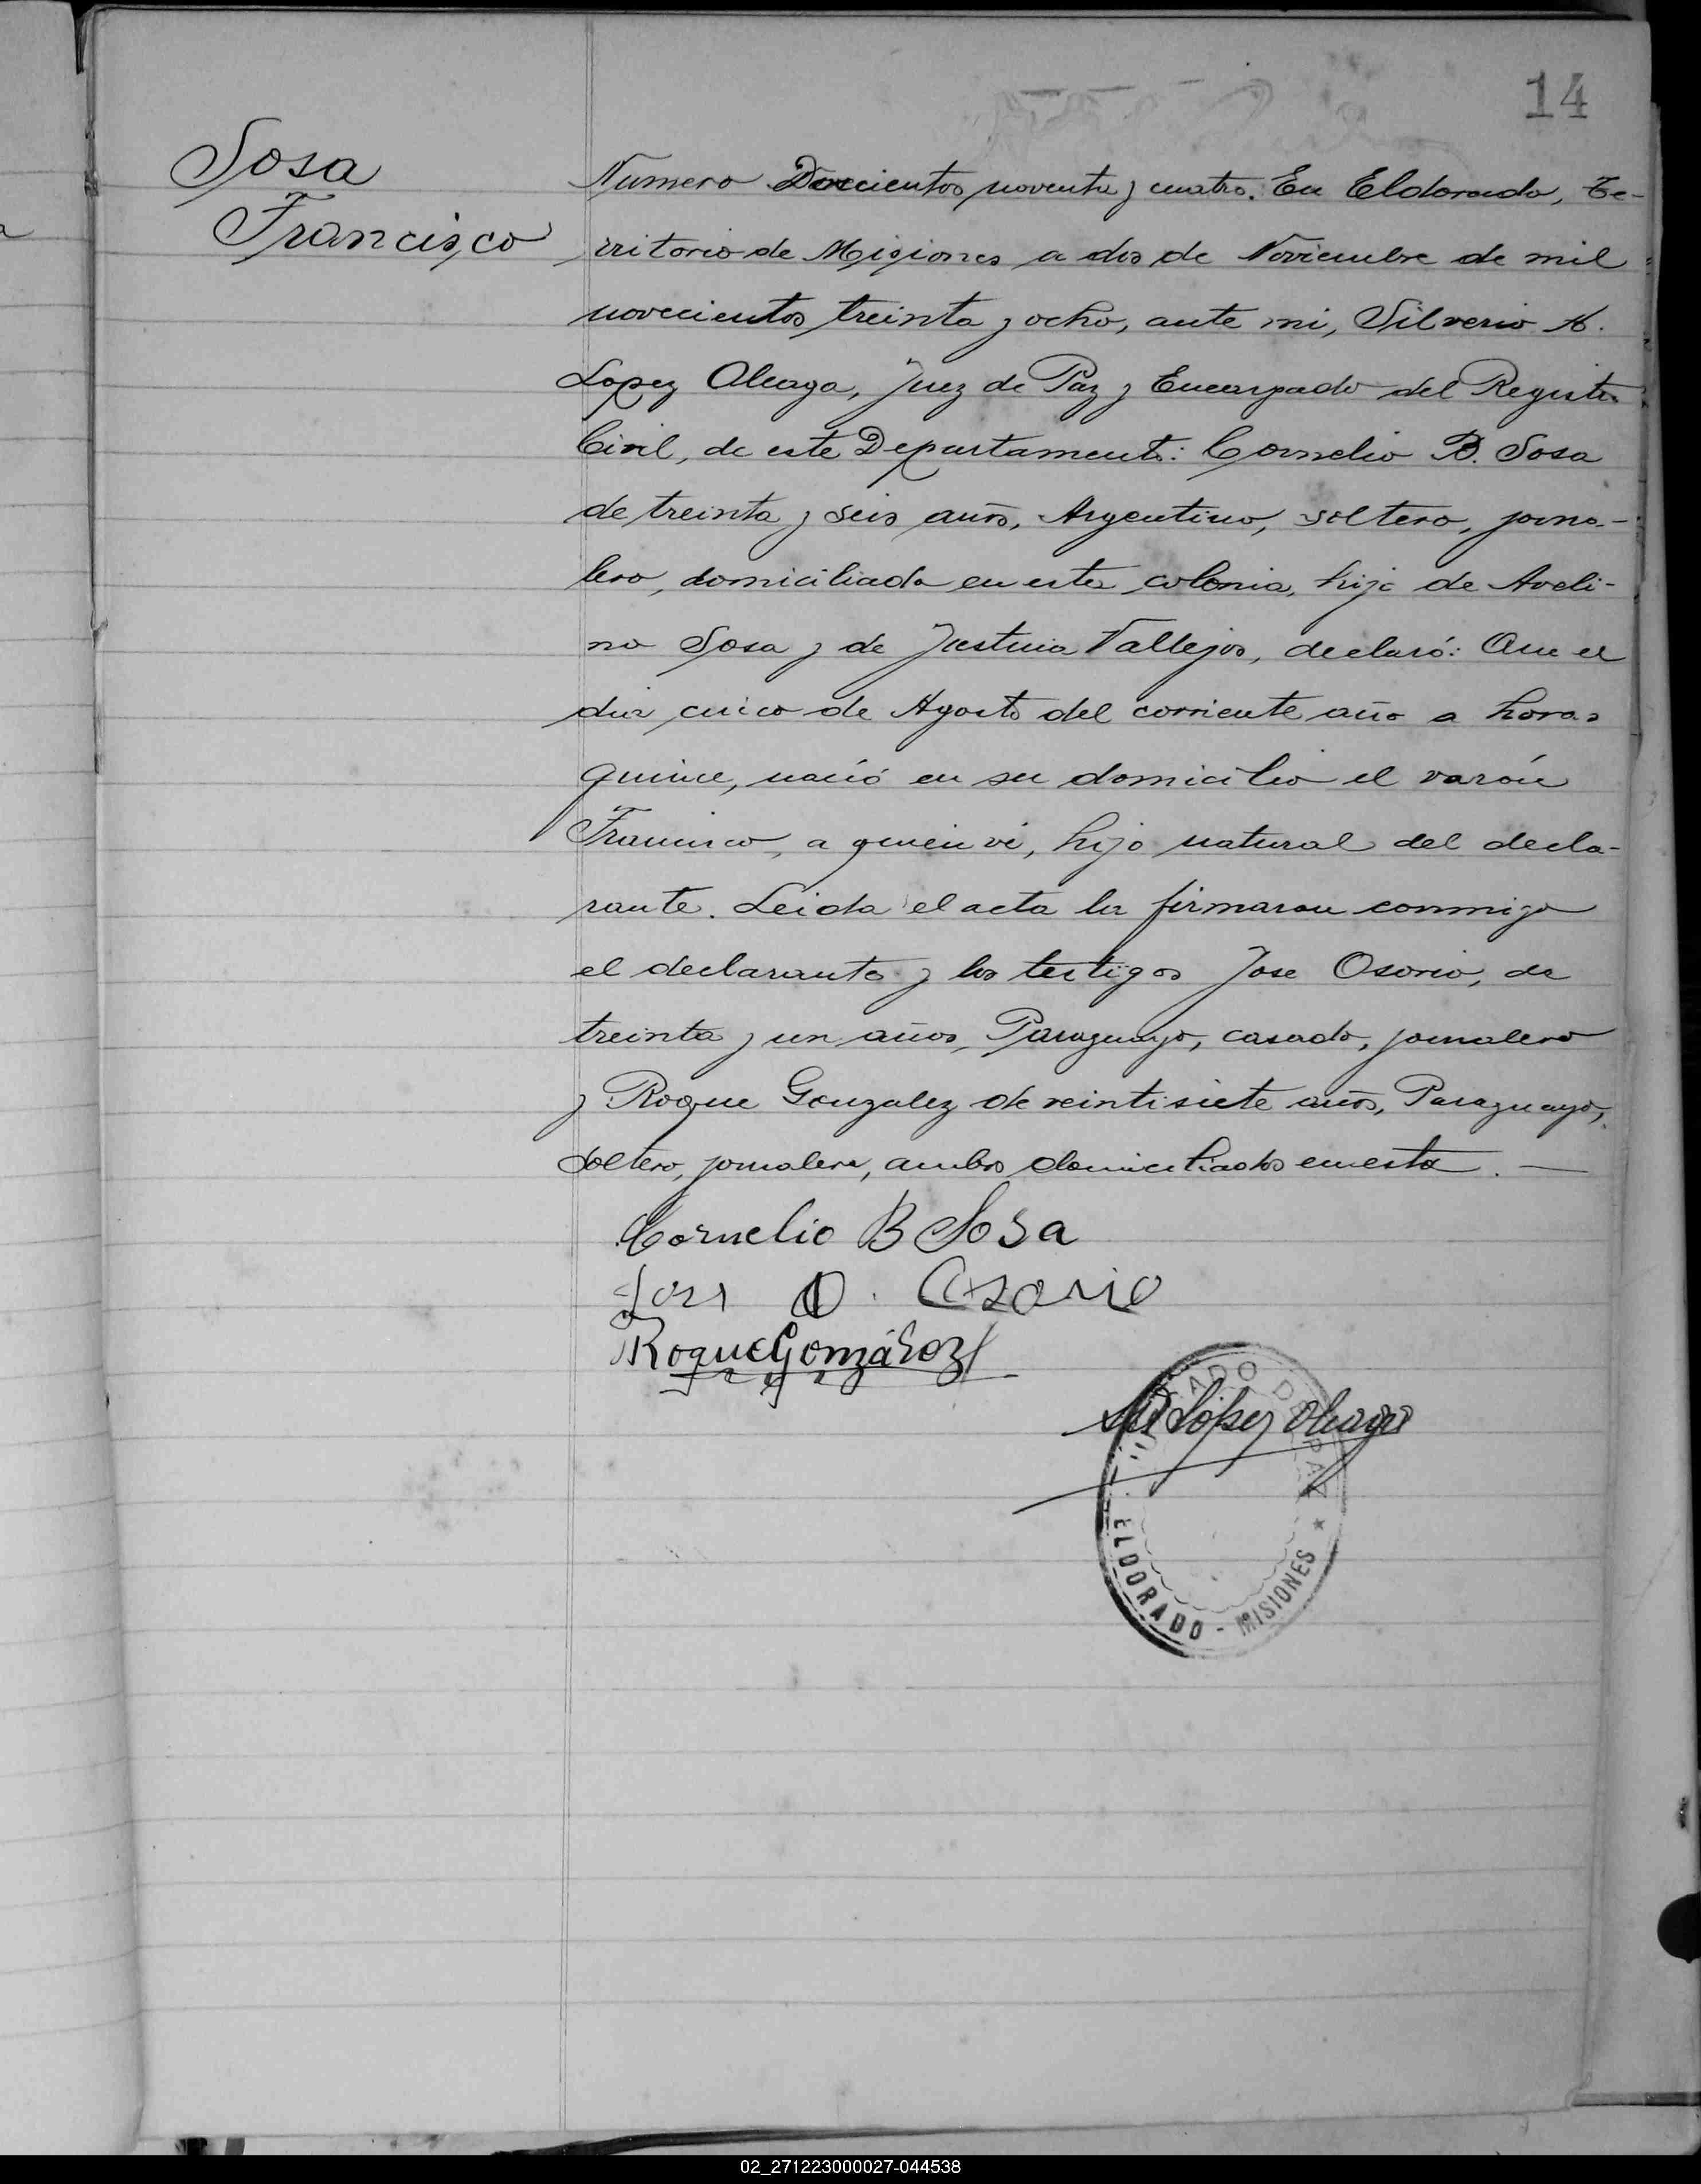 14
Sosa
Francisco
Numero Doscientos noventa y cuatro. En Eldorado, Te-
rritorio de Misiones a dos de Noviembre de mil
novecientos treinta y ocho, ante mi, Silverio A.
Lopez Aleaga, Juez de Paz y Encargado del Registro
Civil, de este Departamento: Cornelio B. Sosa
de treinta y seis años, Argentino, soltero, jorna-
lero, domiciliado en esta colonia, hijo de Aveli-
no Sosa y de Justina Vallejos, declaró: Que el
dia cinco de Agosto del corriente año a horas
quince, nació en su domicilio el varón
Francisco, a quien vi, hijo natural del decla-
rante. Leida el acta la firmaron conmigo
el declarante y los testigos Jose Osorio, de
treinta y un años, Paraguayo, casado, jornalero
y Roque Gonzalez de veintisiete años, Paraguayo,
soltero, jornalero, ambos domiciliados en esta. —
Cornelio B Sosa
O. Osorio
Roque González
Lópes
JUZGADO DE PAZ
ELDORADO - MISIONES
02_271223000027-044538